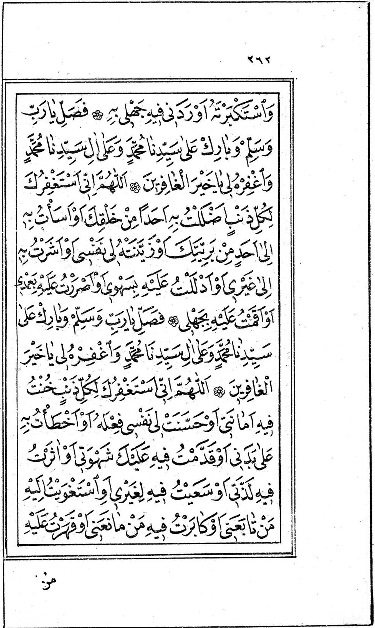 ٢٦٢
وَٱسْتَكْبَرْتُهُ اَوْرَدَنِي فِيهِ جَهْلِي بِهِ ۞ فَصَلِّ يَارَبِّ
وَسَلِّمْ وَبَارِكْ عَلَى سَيِّدِنَا مُحَمَّدٍ وَعَلَى اٰلِ سَيِّدِنَا مُحَمَّدٍ
وَٱغْفِرْهُ لِي يَا خَيْرَ الْغَافِرِينَ ۞ اَللّٰهُمَّ اِنِّي اَسْتَغْفِرُكَ
لِكُلِّ ذَنْبٍ ضَلَلْتُ بِهِ اَحَدًا مِنْ خَلْقِكَ اَوْ اَسَأْتُ بِهِ
اِلَى اَحَدٍ مِنْ بَرِيَّتِكَ اَوْ زَيَّنَتْهُ لِي نَفْسِي اَوْ اَشَرْتُ بِهِ
اِلَى غَيْرِي اَوْ اَدْلَلْتُ عَلَيْهِ بِسَهْوِي اَوْ اَصْرَرْتُ عَلَيْهِ بِعَمْدِي
اَوْ اَقَمْتُ عَلَيْهِ بِجَهْلِي ۞ فَصَلِّ يَارَبِّ وَسَلِّمْ وَبَارِكْ عَلَى
سَيِّدِنَا مُحَمَّدٍ وَعَلَى اٰلِ سَيِّدِنَا مُحَمَّدٍ وَٱغْفِرْهُ لِي يَا خَيْرَ
الْغَافِرِينَ ۞ اَللّٰهُمَّ اِنِّي اَسْتَغْفِرُكَ لِكُلِّ ذَنْبٍ خُنْتُ
فِيهِ اَمَانَتِي اَوْ حَسَّنَتْ لِي نَفْسِي فِعْلَهُ اَوْ اَخْطَأْتُ بِهِ
عَلَى بَدَنِي اَوْ قَدَّمْتُ فِيهِ عَلَيْكَ شَهْوَتِي اَوْ اٰثَرْتُ
فِيهِ لَذَّتِي اَوْ سَعَيْتُ فِيهِ لِغَيْرِي اَوْ اسْتَغْوَيْتُ اِلَيْهِ
مَنْ تَابَعَنِي اَوْ كَابَرْتُ فِيهِ مَنْ مَانَعَنِي اَوْ قَهَرْتُ عَلَيْهِ
مَنْ